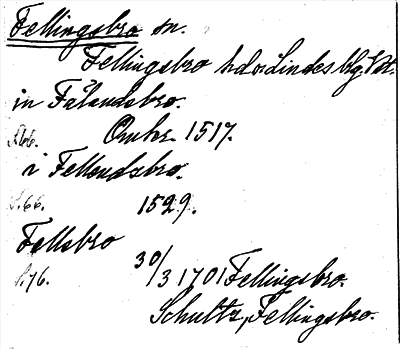 Fellingsbro sn.
Fellingsbro hd o. Lindes blg. Vstm.
in Fälandsbro.
S. 66. Omkr. 1517.
i Fellandzbro.
S. 66. 1529.
Fellsbro
S. 76. 30/3 1701 Fellingsbro.
Schultz, Fellingsbro.